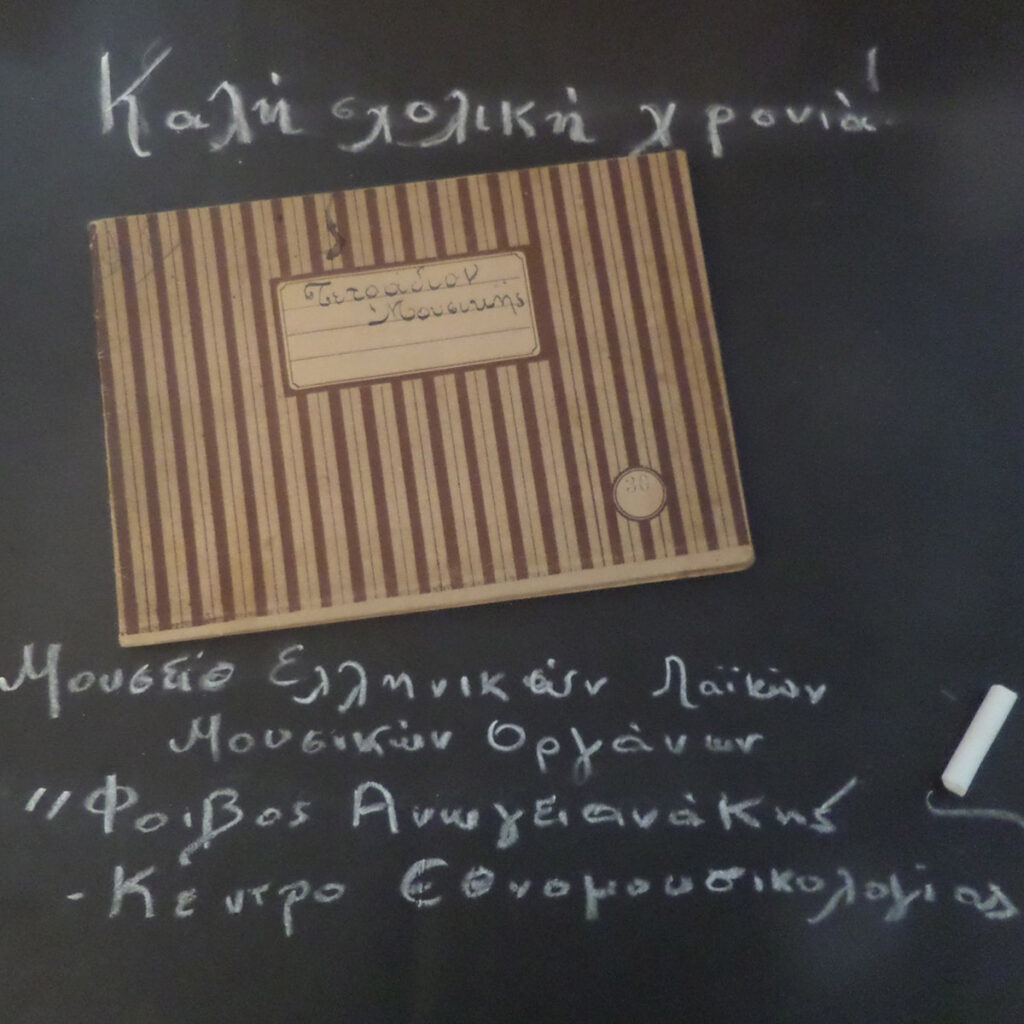 Καλή σχολική χρονιά!
Τετράδιον
Μουσικής
30
Μουσείο Ελληνικών Λαϊκών
Μουσικών Οργάνων
"Φοίβος Ανωγειανάκης"
- Κέντρο Εθνομουσικολογίας